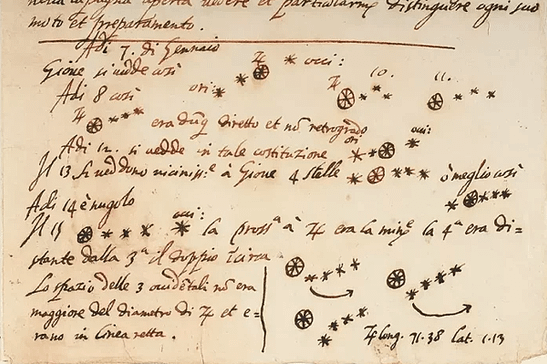 nella campagna aperta vedere et particolarmᵗᵉ distinguere ogni suo
moto et preparamento.
Adi 7. di Gennaio
Gione si vedde così ♃ occi:
Adi 8 così ori: ♃ 10. 11.
♃ era dūq̨ diretto et nō retrogrado
Adi 12. si vedde in tale costituzione ori occi:
Il 13 si veddono vicinissᵉ à Gione 4 stelle ò meglio così
Adi 14 è nugolo
Il 15 occi: la prossᵃ à ♃ era la minᵉ la 4ᵃ era di=
stante dalla 3ᵃ il doppio īcirca
Lo spazio delle 3 occidẽtali nō era
maggiore del diametro di ♃ et e=
rano in linea retta.
♃ long. 71.38 lat. 1.13